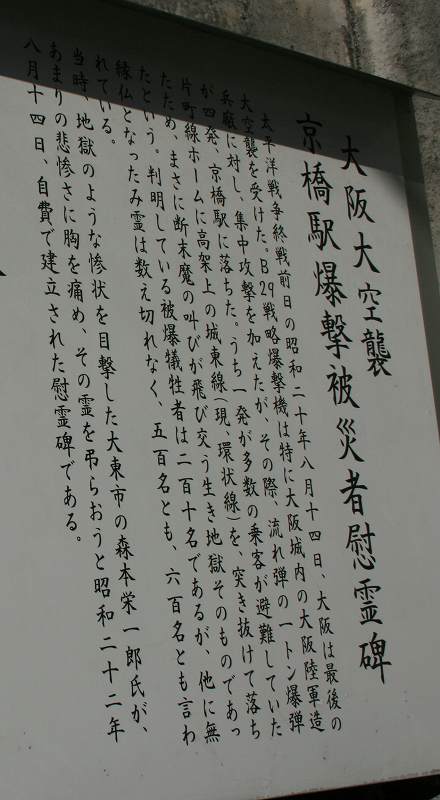 大阪大空襲
京橋駅爆撃被災者慰霊碑
太平洋戦争終戦前日の昭和二十年八月十四日、大阪は最後の
大空襲を受けた。B29戦略爆撃機は特に大阪城内の大阪陸軍造
兵廠に対し、集中攻撃を加えたが、その際、流れ弾の一トン爆弾
が四発、京橋駅に落ちた。うち一発が多数の乗客が避難していた
片町線ホームに高架上の城東線(現、環状線)を、突き抜けて落ち
たため、まさに断末魔の叫びが飛び交う生き地獄そのものであっ
たという。判明している被爆犠牲者は二百十名であるが、他に無
縁仏となったみ霊は数え切れなく、五百名とも、六百名とも言わ
れている。
当時、地獄のような惨状を目撃した大東市の森本栄一郎氏が、
あまりの悲惨さに胸を痛め、その霊を弔らおうと昭和二十二年
八月十四日、自費で建立された慰霊碑である。